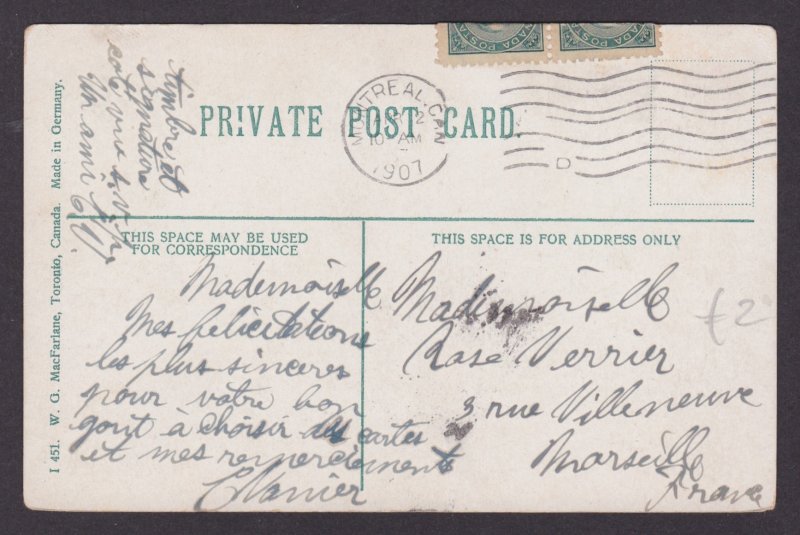 CANADA POSTA
NADA POSTA
MONTREAL, CAN.
12
10 AM
1907
D
PRIVATE POST CARD.
timbre et
signature
coté vue s.v.p.
Un ami
THIS SPACE MAY BE USED
FOR CORRESPONDENCE
Mademoiselle
Mes felicitations
les plus sinceres
pour votre bon
gout à choisir des cartes
et mes remerciements
THIS SPACE IS FOR ADDRESS ONLY
Mademoiselle
Rose Verrier
3 rue Villeneuve
Marseille
France
£2
I 451. W. G. MacFarlane, Toronto, Canada. Made in Germany.